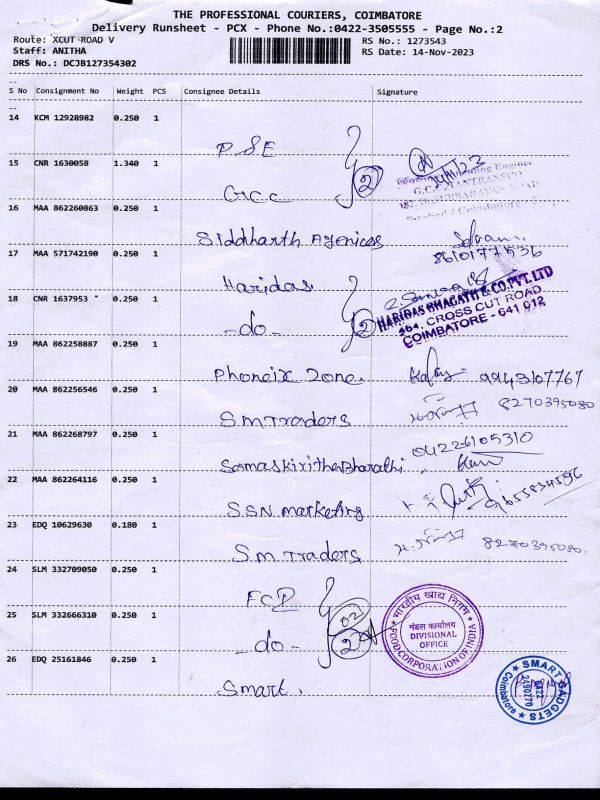 THE PROFESSIONAL COURIERS, COIMBATORE
Delivery Runsheet - PCX - Phone No.:0422-3505555 - Page No.:2
Route: XCUT ROAD V
RS No.: 1273543
Staff: ANITHA
RS Date: 14-Nov-2023
DRS No.: DCJB127354302
S No Consignment No Weight PCS Consignee Details Signature
14 KCM 12928982 0.250 1 PSE
15 CNR 1630058 1.340 1 GCC 2
16 MAA 862260863 0.250 1 Siddharth Agenices
8610177536
17 MAA 571742190 0.250 1 Haridas
18 CNR 1637953 0.250 1 -do- 2
HARIDAS BHAGATH & CO.PVT.LTD
464, CROSS CUT ROAD.
COIMBATORE - 641 012
19 MAA 862258887 0.250 1 Phoneix Zone. 9943107767
20 MAA 862256546 0.250 1 SMTraders 8270395080
21 MAA 862268797 0.250 1 SamaskirithaBharathi 04226105310
22 MAA 862264116 0.250 1 SSN marketing 9655834596
23 EDQ 10629630 0.180 1 S.m Traders 8270395080.
24 SLM 332709050 0.250 1 FCI
25 SLM 332666310 0.250 1 -do- 02 2
भारतीय खाद्य निगम
मंडल कार्यालय
DIVISIONAL
OFFICE
FOOD CORPORATION OF INDIA
26 EDQ 25161846 0.250 1 Smart.
SMART GADGETS
0422
2490770
Coimbatore